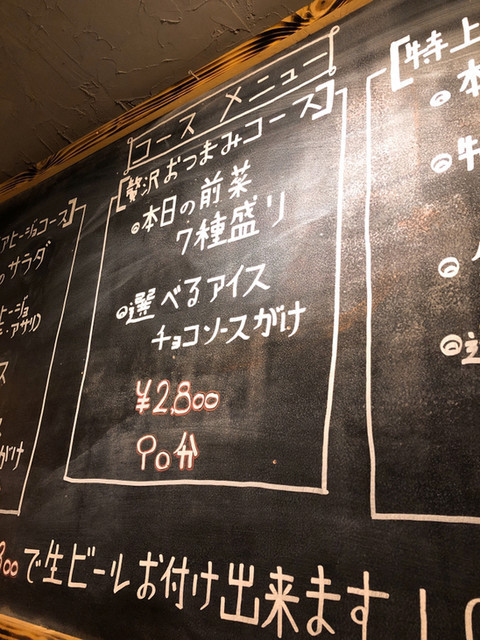 コース メニュー
アヒージョコース】
サラダ
ヒージョ
アサリ)
ス
がけ
【贅沢おつまみコース】
◎本日の前菜
7種盛り
◎選べるアイス
チョコソースがけ
¥2,800
90分
【特上
◎本
◎牛
◎
◎選
800で生ビールお付け出来ます!